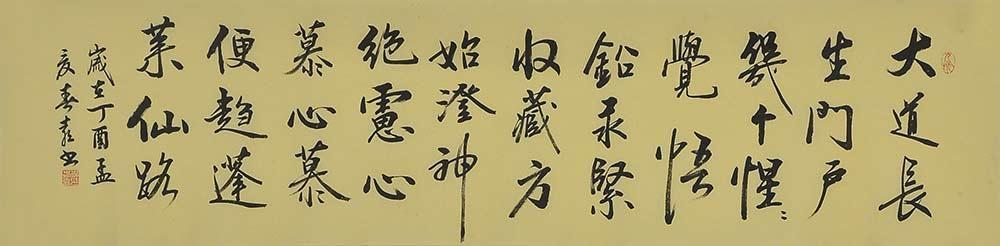 大道長
生門戶
幾个惺〻
覺悟
鉛汞緊
收藏方
始澄神
絕慮心
慕心慕
便趋蓬
萊仙路
歲在丁酉孟
夏春書